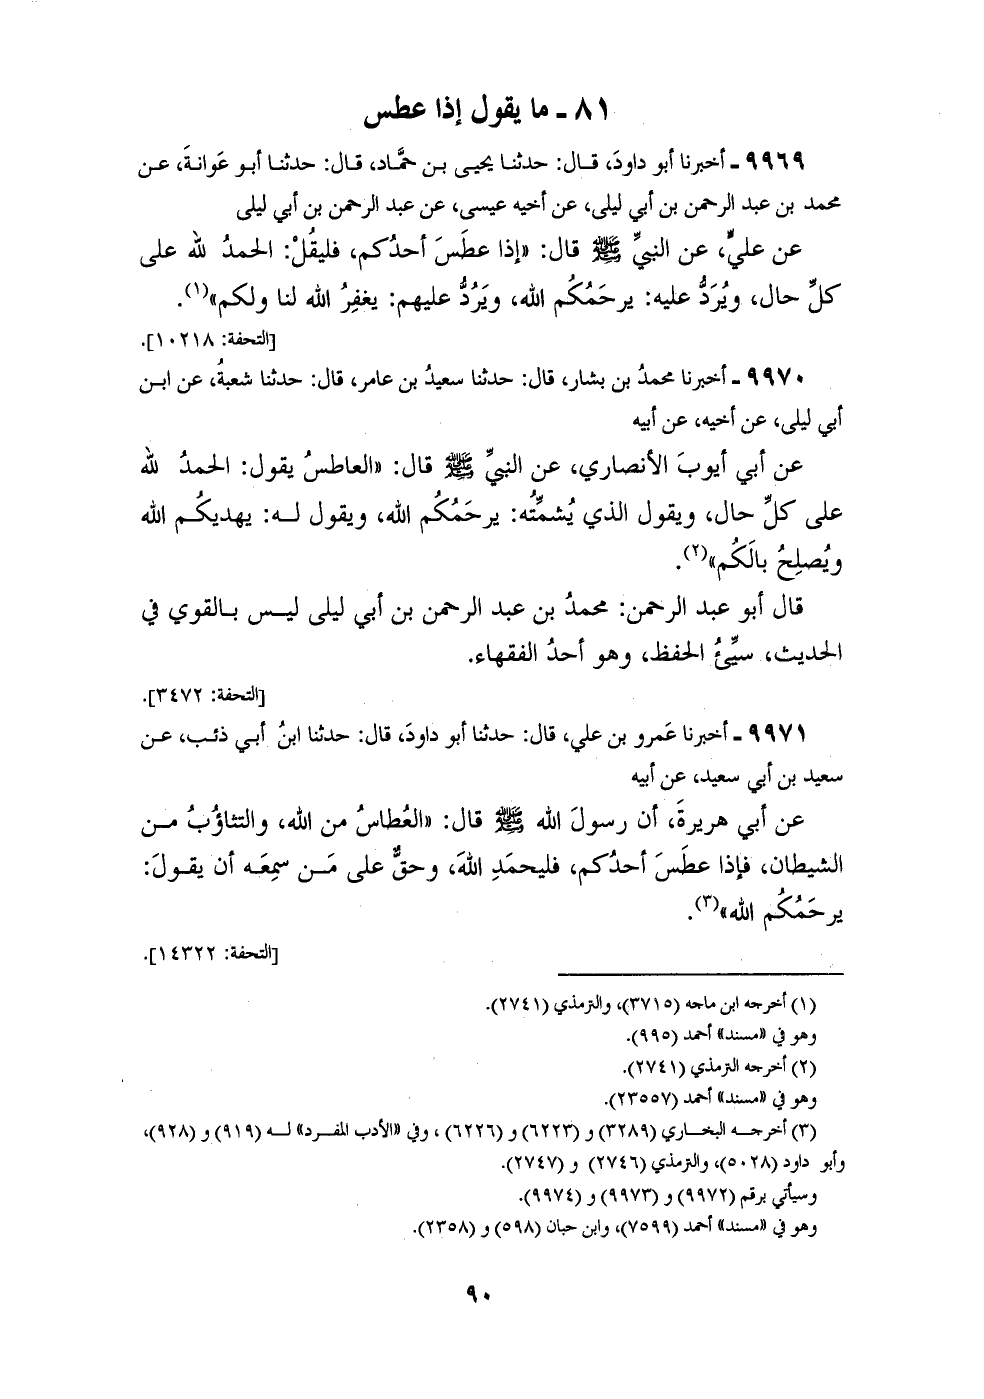 ٨١ ـ ما يقول إذا عطس
٩٩٦٩ ـ أخبرنا أبو داودَ، قال: حدثنا يحيى بن حمَّاد، قال: حدثنا أبو عَوانةَ، عن
محمد بن عبد الرحمن بن أبي ليلى، عن أخيه عيسى، عن عبد الرحمن بن أبي ليلى
عن عليٍّ، عن النبيِّ ﷺ قال: «إذا عطَسَ أحدُكم، فليقُلْ: الحمدُ لله على
كلِّ حال، ويُرَدُّ عليه: يرحَمُكُم الله، ويَرُدُّ عليهم: يغفِرُ الله لنا ولكم»(١).
[التحفة: ١٠٢١٨].
٩٩٧٠ ـ أخبرنا محمدُ بن بشار، قال: حدثنا سعيدُ بن عامر، قال: حدثنا شعبةُ، عن ابن
أبي ليلى، عن أخيه، عن أبيه
عن أبي أيوبَ الأنصاري، عن النبيِّ ﷺ قال: «العاطسُ يقول: الحمدُ لله
على كلِّ حال، ويقول الذي يُشمِّتُه: يرحَمُكُم الله، ويقول له: يهديكُم الله
ويُصلِحُ بالَكُم»(٢).
قال أبو عبد الرحمن: محمدُ بن عبد الرحمن بن أبي ليلى ليس بالقوي في
الحديث، سيِّئُ الحفظ، وهو أحدُ الفقهاء.
[التحفة: ٣٤٧٢].
٩٩٧١ ـ أخبرنا عَمرو بن علي، قال: حدثنا أبو داودَ، قال: حدثنا ابنُ أبي ذئب، عن
سعيد بن أبي سعيد، عن أبيه
عن أبي هريرةَ، أن رسولَ الله ﷺ قال: «العُطاسُ من الله، والتثاؤُبُ من
الشيطان، فإذا عطَسَ أحدُكم، فليحمَدِ اللهَ، وحقٌّ على مَن سمِعَه أن يقولَ:
يرحَمُكُم الله»(٣).
[التحفة: ١٤٣٢٢].
(١) أخرجه ابن ماجه (٣٧١٥)، والترمذي (٢٧٤١).
وهو في «مسند» أحمد (٩٩٥).
(٢) أخرجه الترمذي (٢٧٤١).
وهو في «مسند» أحمد (٢٣٥٥٧).
(٣) أخرجه البخاري (٣٢٨٩) و (٦٢٢٣) و (٦٢٢٦) ، وفي «الأدب المفرد» له (٩١٩) و (٩٢٨)،
وأبو داود (٥٠٢٨)، والترمذي (٢٧٤٦) و (٢٧٤٧).
وسيأتي برقم (٩٩٧٢) و (٩٩٧٣) و (٩٩٧٤).
وهو في «مسند» أحمد (٧٥٩٩)، وابن حبان (٥٩٨) و (٢٣٥٨).
٩٠